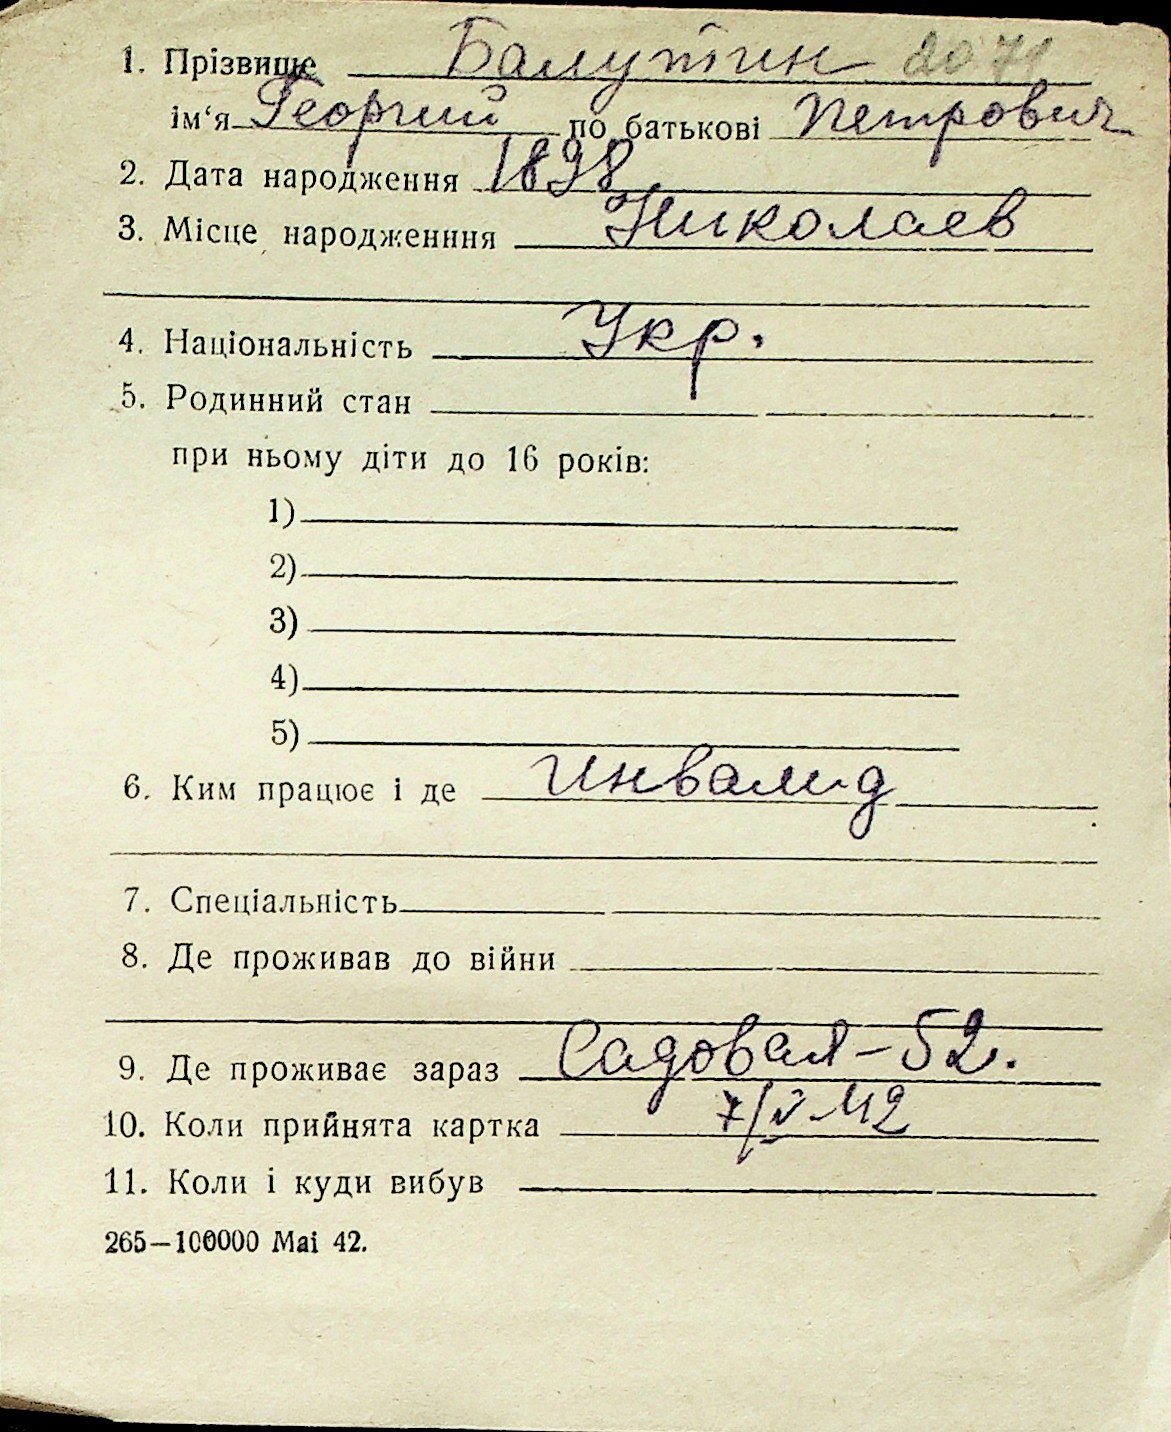 1. Прізвище Балутин 2071
ім'я Георгий по батькові Петрович
2. Дата народження 1898
3. Місце народженння Николаев
4. Національність Укр.
5. Родинний стан
при ньому діти до 16 років:
1)
2)
3)
4)
5)
6. Ким працює і де инвалид
7. Спеціальність
8. Де проживав до війни
9. Де проживає зараз Садовая – 52.
10. Коли прийнята картка 7/V 42
11. Коли і куди вибув
265—100000 Mai 42.